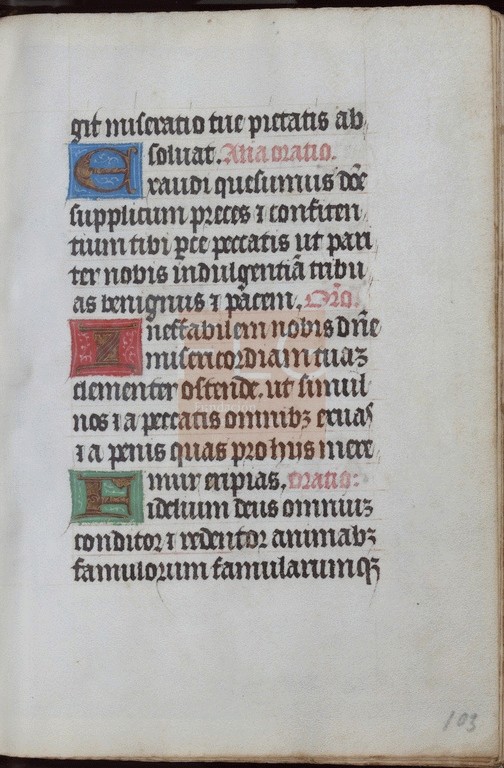 git miseratio tue pietatis ab
soluat. Alia oratio.
Exaudi quesumus dñe
supplicum preces ⁊ confiten
tium tibi ꝑce peccatis ut pari
ter nobis indulgentiã tribu
as benignus ⁊ pacem. Orõ.
Ineffabilem nobis dñe
misericordiam tuaꝫ
clementer ostende. ut simul
nos ⁊ a peccatis omnibꝫ exuas
⁊ a penis quas pro hiis mere
mur eripias. oratio:
Fidelium deus omniuꝫ
conditor ⁊ redentor animabꝫ
famulorum famularumqꝫ
103